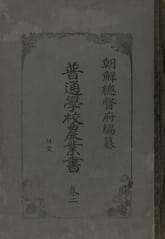 朝鮮總督府編纂
普通學校農業書 卷二